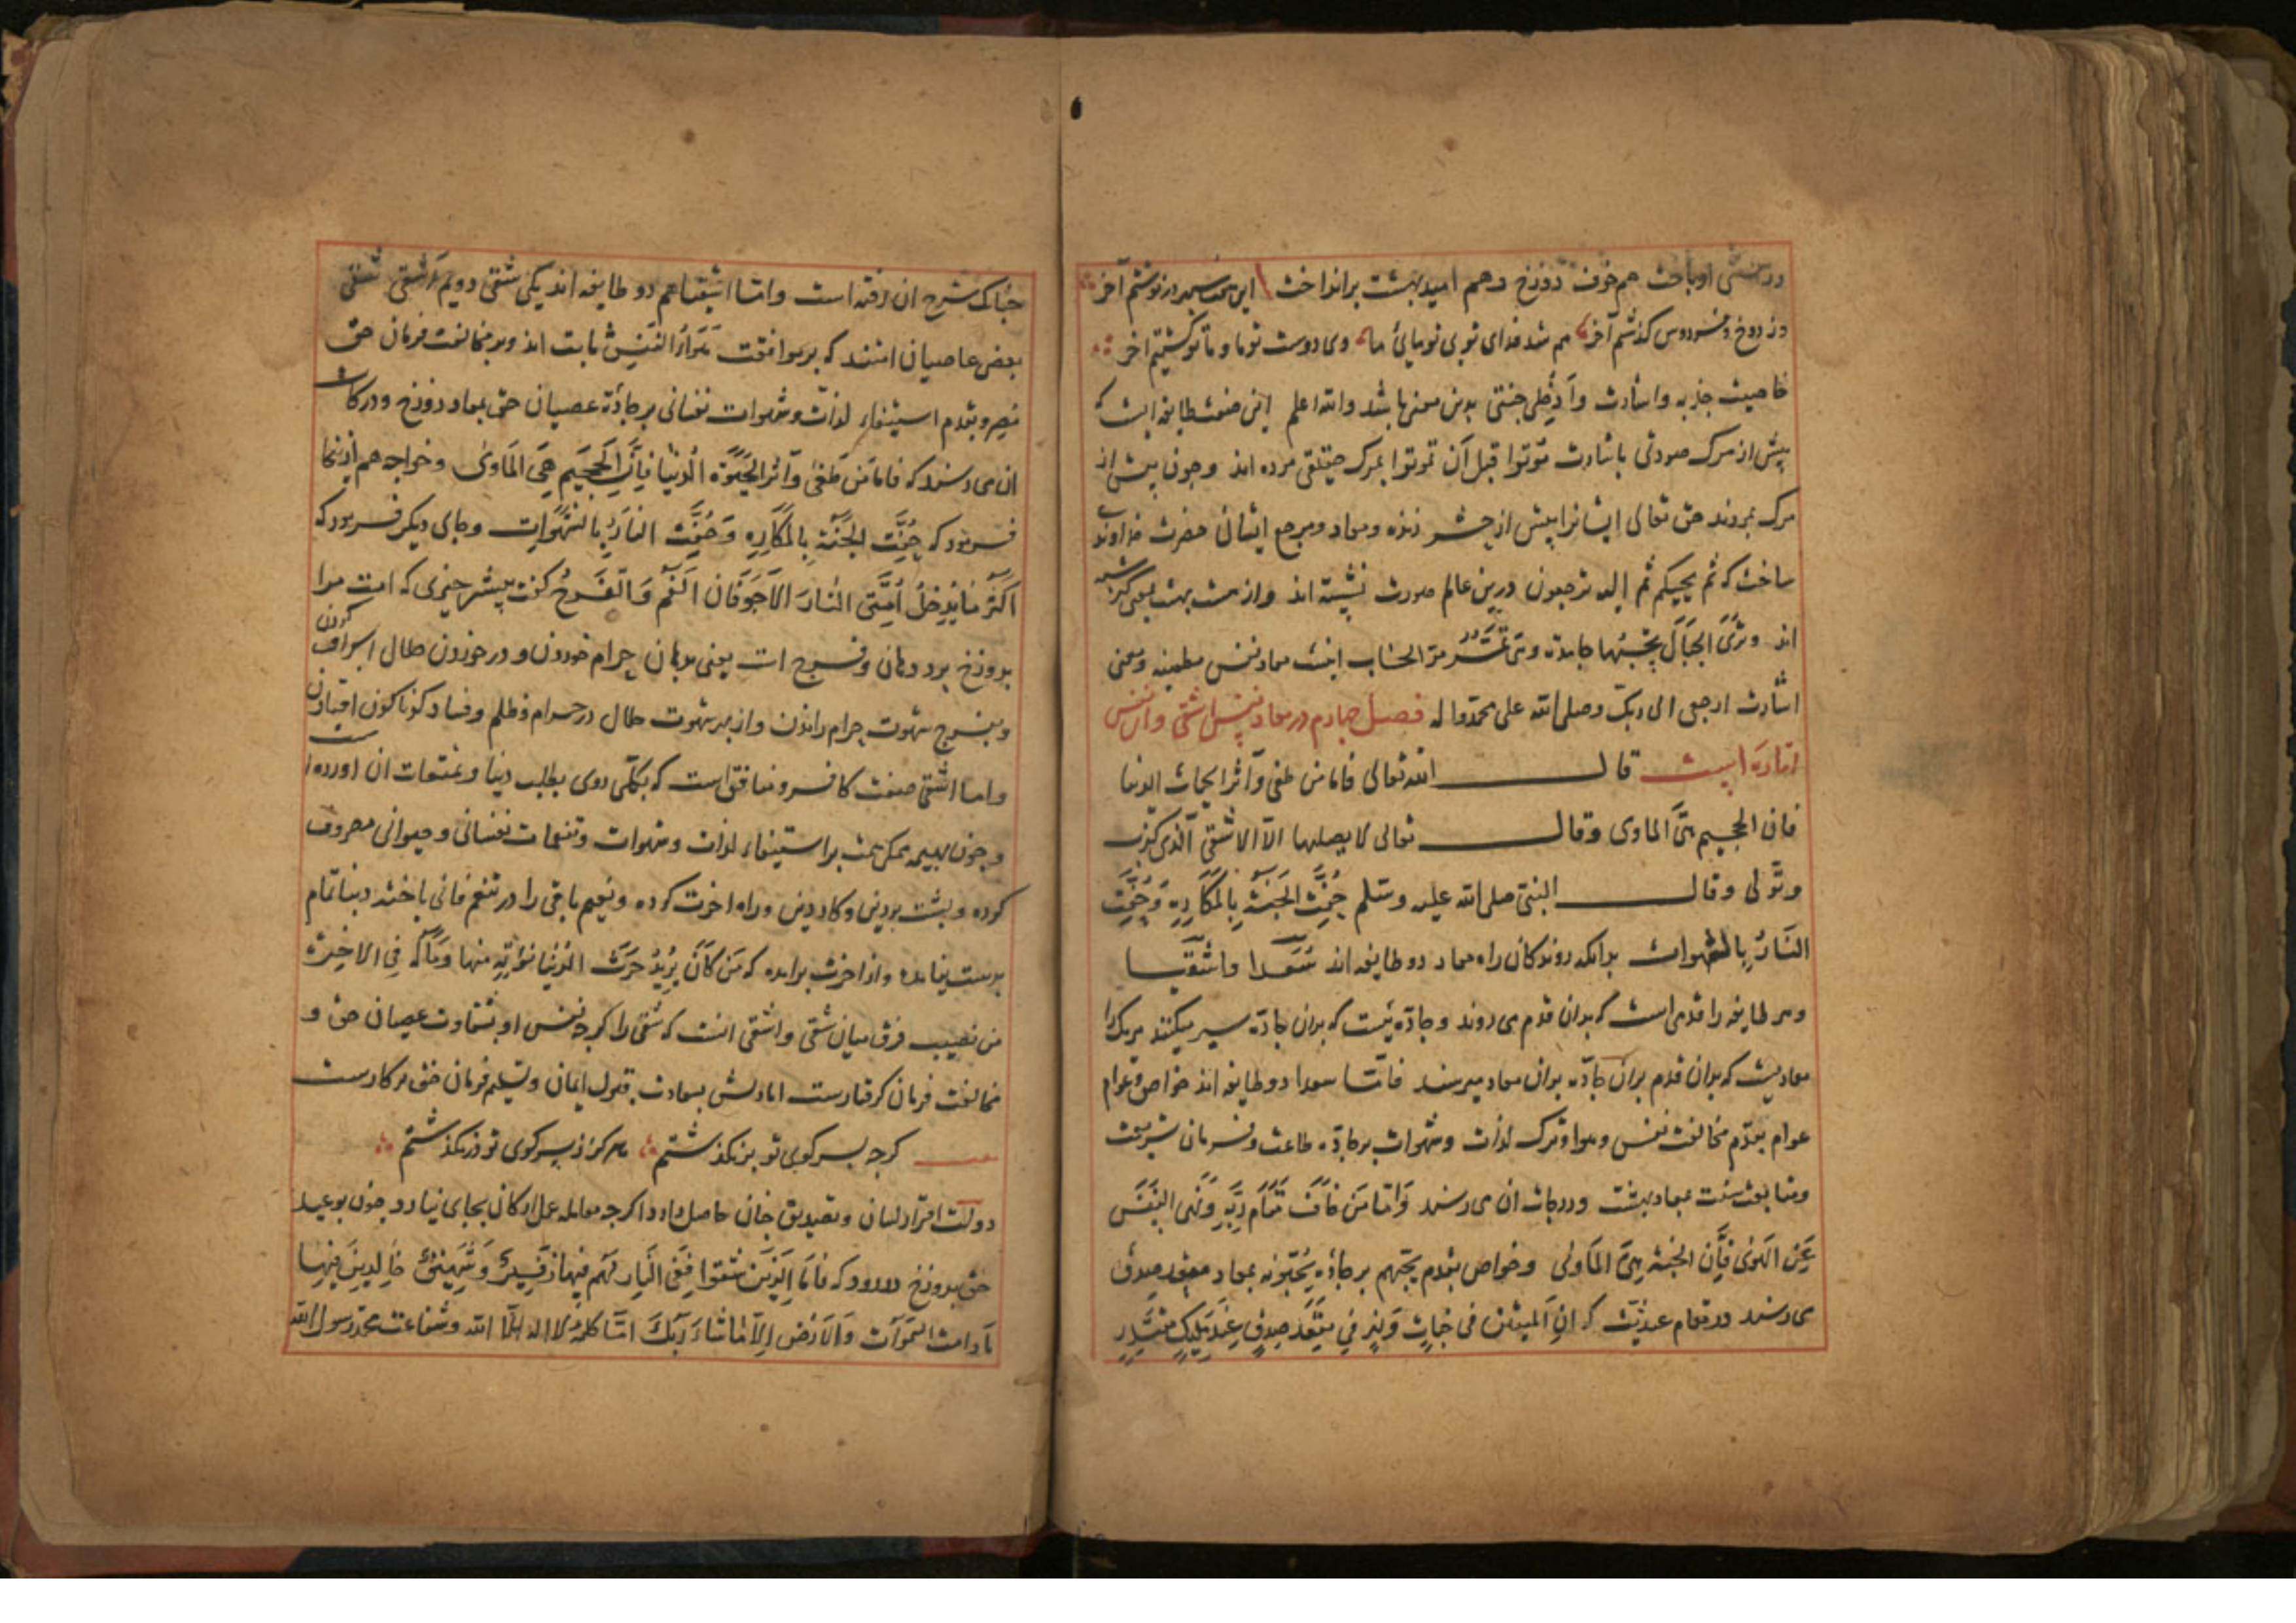 در هستی او باخت هم خوف دوزخ و هم امید بهشت برانداخت این هفت سپهر در نوشتم آخر
وز دوزخ و فردوس کذشتم آخر هم شد فدای تویی تو مایی ما وی دوست تو ما و ما تو کشتیم اخر
خاصیت جذبه و اشارت وادخلی جنتی بدین معنی باشد والله اعلم این صفت طایفه ایست که
پیش از مرک صورتی باشارت موتوا قبل أن تموتوا بمرک حقیقی مرده اند و چون پیش از
مرک بمردند حق تعالی ایشانرا پیش از حشر زنده و معاد و مرجع ایشان حضرت خداوندی
ساخت که ثم یحییکم ثم إلیه ترجعون درین عالم صورت نشسته اند و از هشت بهشت
اند وتری الجبال تحسبها جامدة وهی تمر مر السحاب اینست معاد نفس مطمینه و معنی
اشارت ارجعی الی ربک وصلی الله علی محمد واله فصل چهارم در معاد نفس اشقی و ان نفس
امّاره است قال الله تعالی فاما من طغی وآثر الحیات الدنیا
فان الجحیم هی الماوی وقال تعالی لا یصلیها الّا الاشقی الّذی کذب
وتولی وقال النبی صلی الله علیه وسلم حُفَّت الجَنَّة بِالمَکَارِهِ وَحُفَّت
النَارُ بِالشهوات بدانکه روندکان راه معاد دو طایفه اند سُعَدا و اشقیا
و هر طایفه را قدمی است که بدان قدم می روند و جادّه ئیست که بران جادّه سیر میکنند هریک را
معادیست که بدان قدم بران جادّه بدان معاد میرسند فامّا سعدا دو طایفه اند خواص و عوام
عوام بقدم مخالفت نفس و هوا و ترک لذات و شهوات بر جادّه طاعت و فرمان شریعت
و متابعت سنت بمعاد بهشت و درجات ان می رسند وَامّا مَن خَافَ مَقَامَ رَبِّهِ وَنَهَی النَفسَ
عَنِ الهَوٰی فَإِنَّ الجنة هِیَ المَاوٰی و خواص بقدم یحبّهم بر جادّه یُحِبّونه بمعاد مقعد صدق
می رسند در مقام عندیت که انّ المتقین فی جَنّاتٍ وَنَهَرٍ فِی مَقعَدِ صِدقٍ عِندَ مَلِیکٍ مُقتَدِر
چنانک شرح ان رفته است و امّا اشقیا هم دو طایفه اند یکی شقی دویم اشقی شقی
بعض عاصیان امتند که بر موافقت هوا النفس ثابت اند و بر مخالفت فرمان حق
مصر و بقدم استیفاء لذات و شهوات نفسانی بر جادّه عصیان حق بمعاد دوزخ و درکات
ان می رسند که فاما مَن طَغٰی وَآثَرَ الحَیٰوةَ الدُنیَا فَإِنَّ الجَحِیمَ هِیَ المَاوٰی و خواجه هم ازینجا
فرمود که حُفَّتِ الجَنَّةُ بِالمَکَارِهِ وَحُفَّتِ النَارُ بِالشَهَوَاتِ و جای دیکر فرمود که
اَکثَرُ مَا یُدخِلُ اُمَّتِی النَارَ الاَجوَفَانِ الفَمُ وَالفَرجُ کفت بیشتر چیزی که امت مرا
بدوزخ برد دهان و فرج است یعنی بدهان حرام خوردن و در خوردن حلال اسراف کردن
و بفرج شهوت حرام راندن و از بهر شهوت حلال در حرام و ظلم و فساد کوناکون افتادن
و اما اشقی صفت کافر و منافق است که بکلّی روی بطلب دنیا و تمتعات ان اورده است
و چون بهیمه همکی همت بر استیفاء لذات و شهوات و تنعمات نفسانی و حیوانی مصروف
کرده و پشت بردین و کار دین و راه اخرت کرده و نعیم باقی را در تنعم فانی باخته دنیا تمام
بدست نیامده و از اخرت برامده که مَن کَانَ یُرِیدُ حَرثَ الدُنیَا نؤتِهِ منها وَمَا لَه فِی الاخِرَة
من نصیب فرق میان شقی و اشقی انست که شقی را کرچه نفس او بشقاوت عصیان حق و
مخالفت فرمان کرفتارست اما دلش بسعادت قبول ایمان و تسلیم فرمان حق بر کارست
کرچه بسر کوی تو برنکذشتم هرکز ز سر کوی تو درنکذشتم
دولت اقرار لسان و تصدیق جنان حاصل دارد اکرچه معامله عمل ارکان بجای نیارد چون بوعید
حق بدوزخ در رود که فَامّا الَّذِینَ شَقُوا فَفِی النَّارِ لَهُم فِیهَا زَفِیرٌ وَشَهِیقٌ خَالِدِینَ فِیهَا
مَا دامَت السَمٰوَات وَالاَرض إلاّ مَا شَاءَ رَبُّکَ امّا کلمه لا اله إلّا الله و شفاعت محمد رسول الله